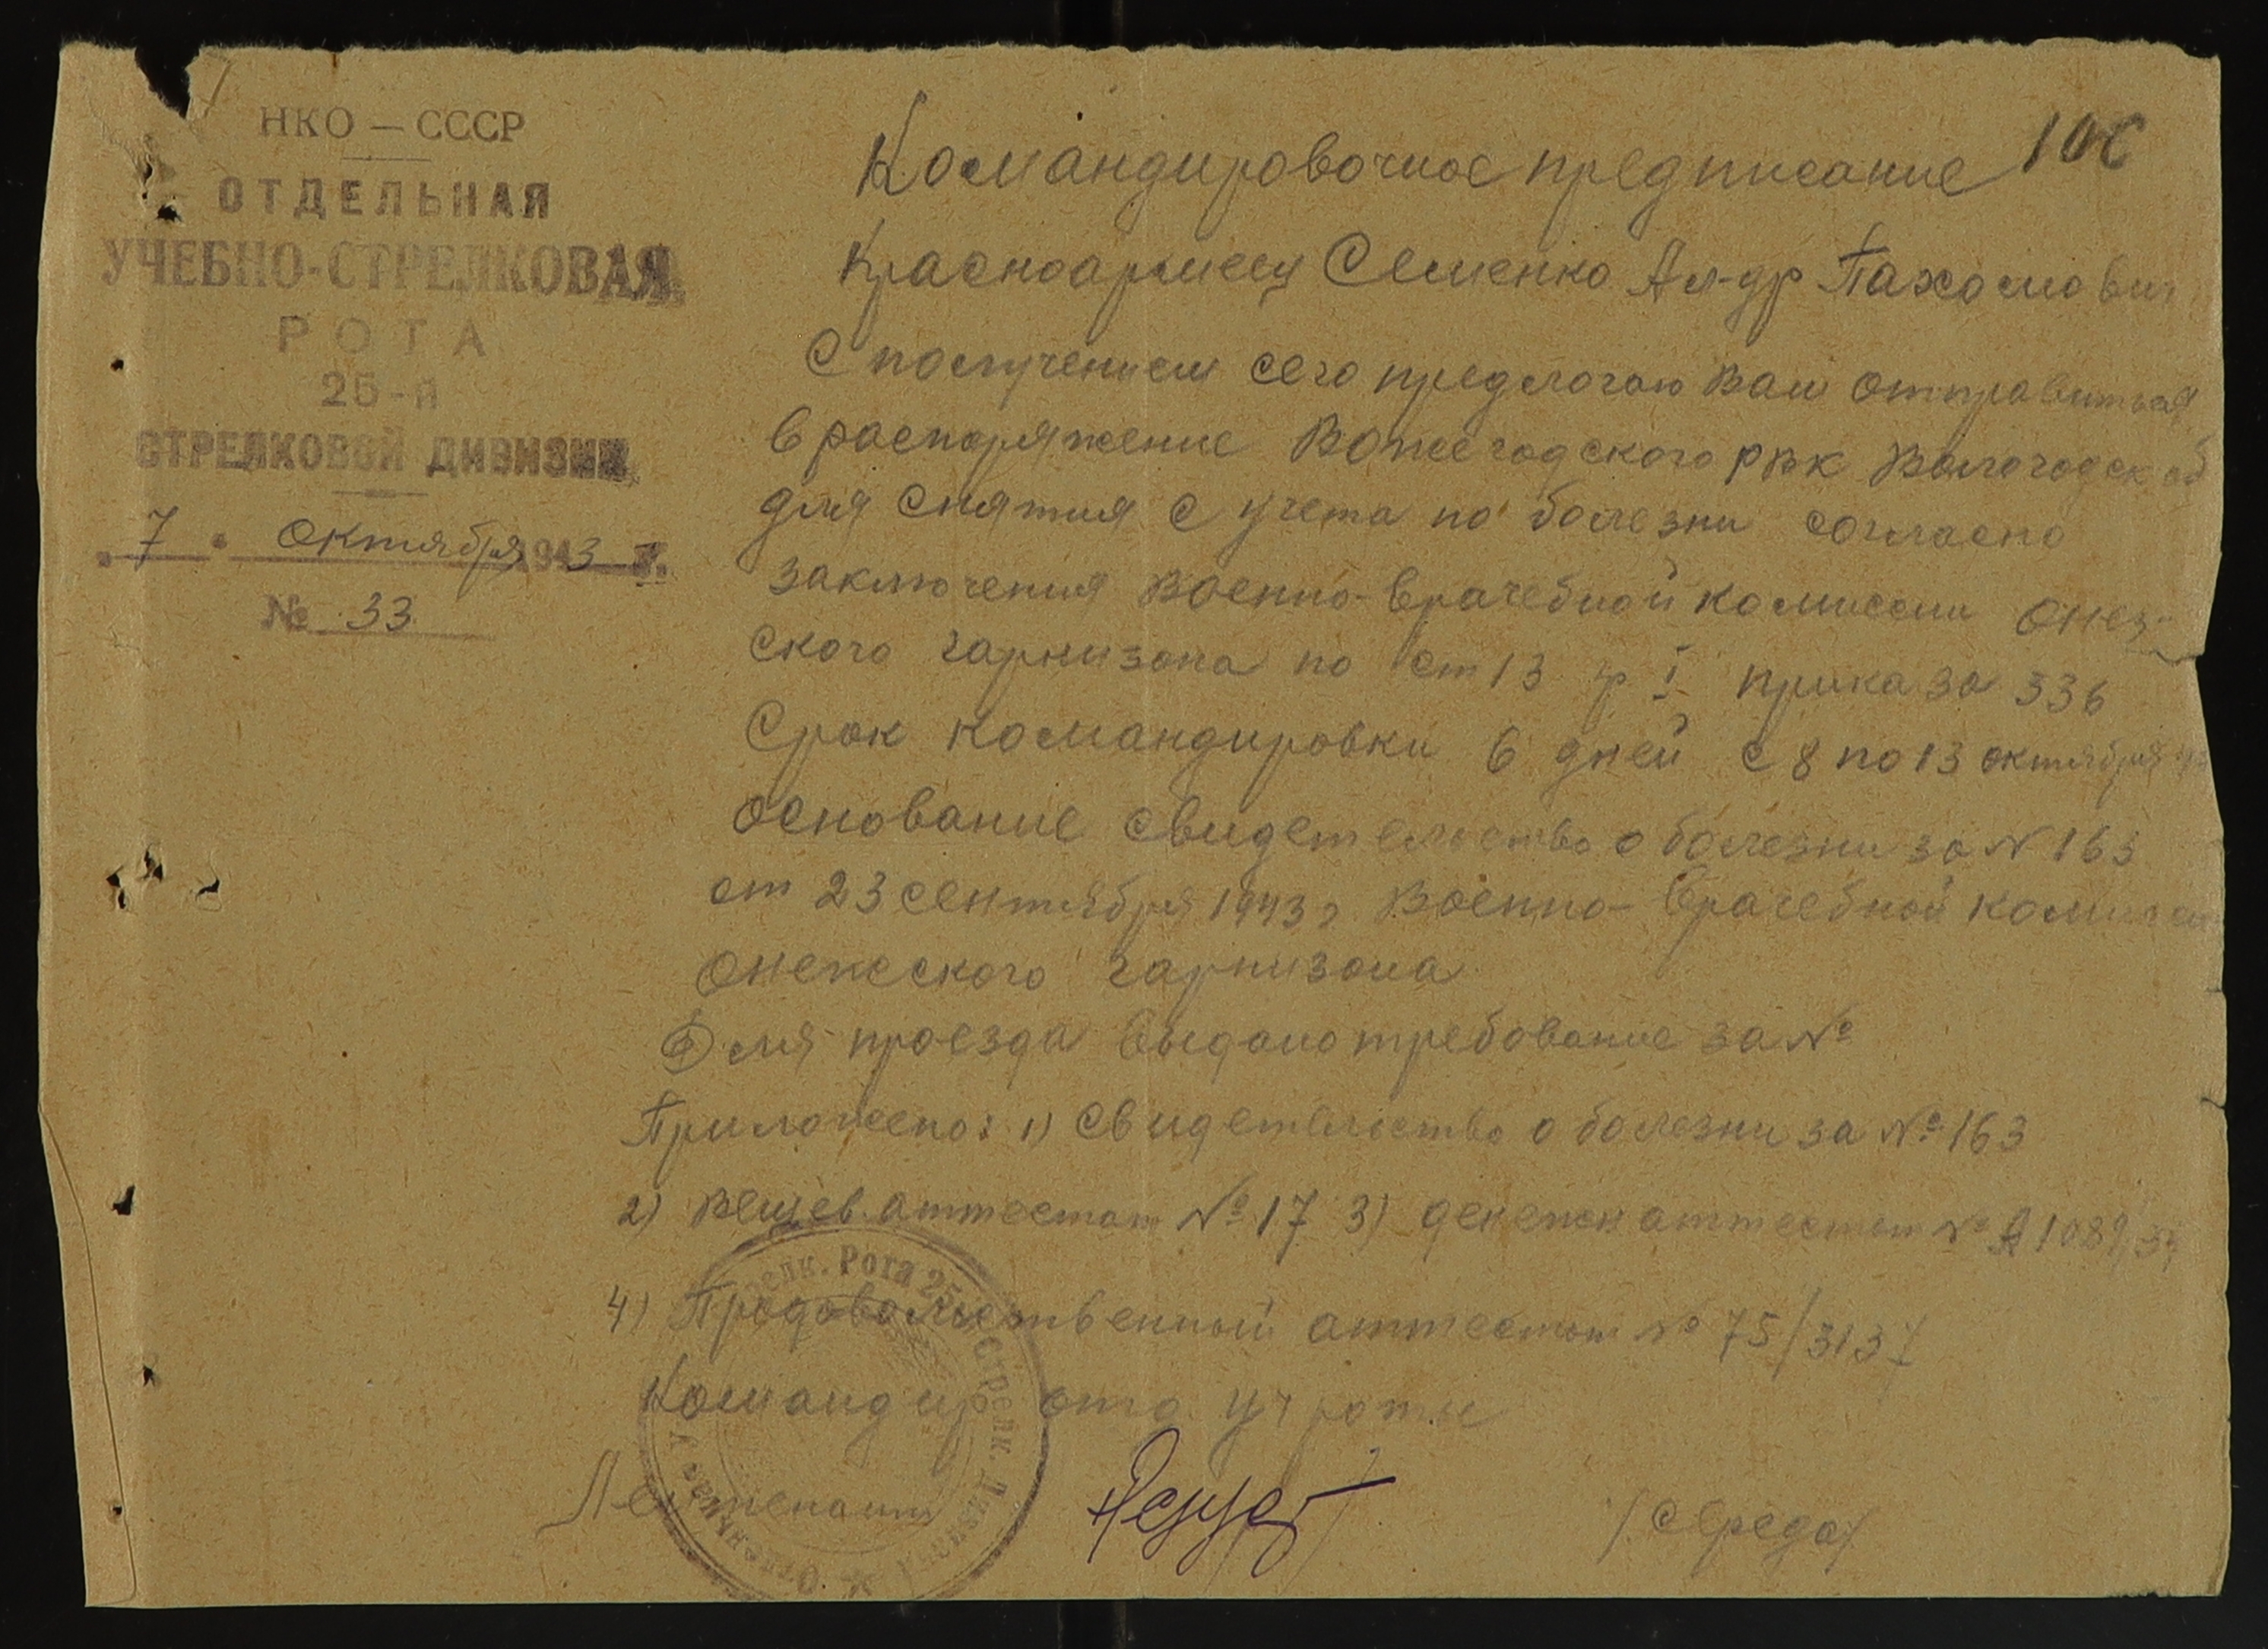 НКО — СССР
ОТДЕЛЬНАЯ
УЧЕБНО-СТРЕЛКОВАЯ
РОТА
25-й
СТРЕЛКОВОЙ ДИВИЗИИ
„7“ октября 1943 г.
№ 33
Командировочное предписание
Красноармеец Семенко Ал-др Пахомович
С получением сего предлогаю Вам отправиться
в распоряжение Вожегодского рвк Вологодск об
для снятия с учета по болезни согласно
заключения Военно-врачебной комиссии Онеж-
ского гарнизона по ст 13 гр I приказа 336
Срок командировки 6 дней с 8 по 13 октября
основание свидетельство о болезни за N 163
от 23 сентября 1943 г. Военно-врачебной комиссии
Онежского гарнизона
Для проезда выдано требование за №
Приложено: 1) Свидетельство о болезни за № 163
2) Вещев. аттестат № 17 3) денежн аттестат №
4) Продовольственный аттестат № 75/
Командир отд уч роты
Лейтенант
/Середа/